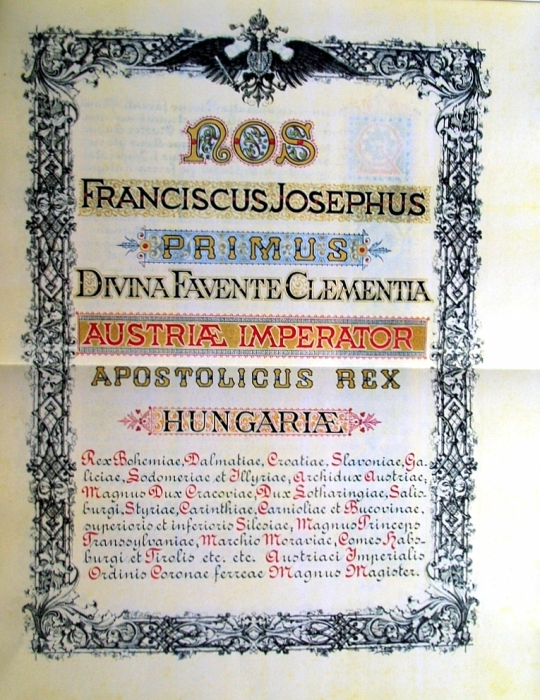 NOS
FRANCISCUS JOSEPHUS
PRIMUS
DIVINA FAVENTE CLEMENTIA
AUSTRIÆ IMPERATOR
APOSTOLICUS REX
HUNGARIÆ
Rex Bohemiae, Dalmatiae, Croatiae, Slavoniae, Ga-
liciae, Lodomeriae et Illyriae, Archidux Austriae;
Magnus Dux Cracoviae, Dux Lotharingiae, Salis-
burgi, Styriae, Carinthiae, Carnioliae et Bucovinae,
superioris et inferioris Silesiae, Magnus Princeps
Transsylvaniae, Marchio Moraviae, Comes Habs-
burgi et Tirolis etc. etc. Austriaci Imperialis
Ordinis Coronae ferreae Magnus Magister.